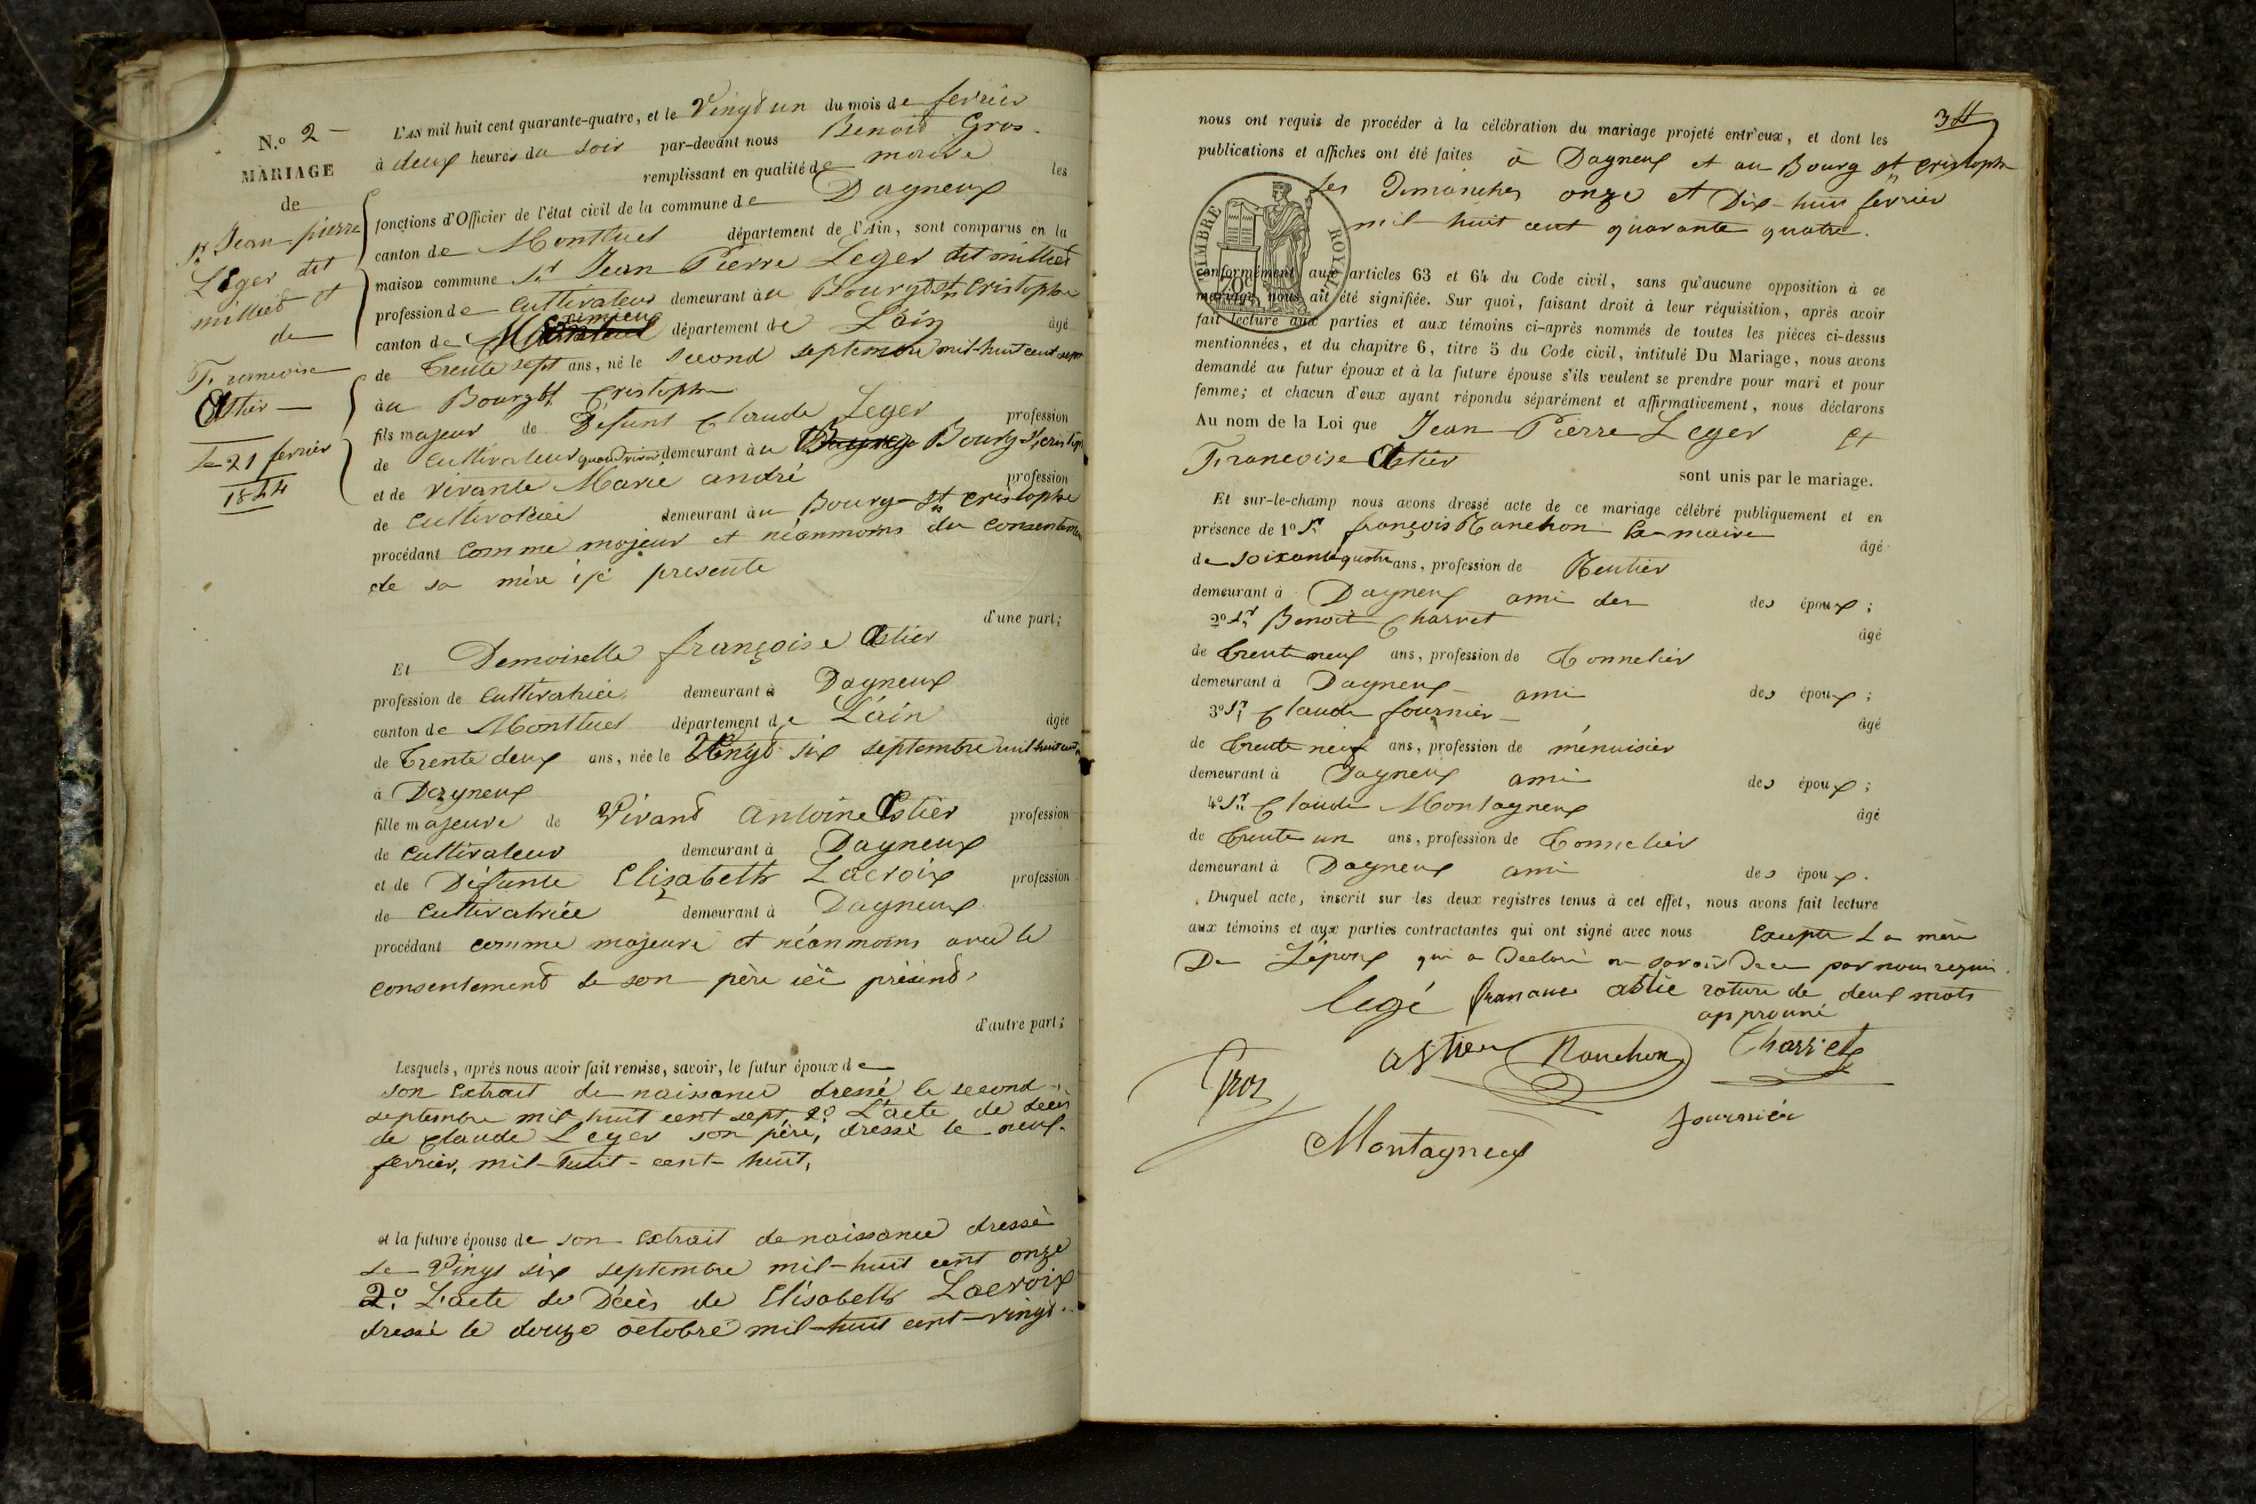 N.o 2
MARIAGE
de
Sr Jean-pierre
Léger dit
millied et
de
Francoise
Astier
Le 21 fevrier
1844
L'AN mil huit cent quarante-quatre, et le Vingt un du mois de fevrier
à deux heures du soir par-devant nous Benoit Gros
remplissant en qualité de maire les
fonctions d'Officier de l'état civil de la commune de Dagneux
canton de Montluel département de l'Ain, sont comparus en la
maison commune Sr Jean Pierre Leger dit millied
profession de Cultivateur demeurant à u Bourg St Cristophe
canton de département de L'ain âgé
de Trente sept ans, né le second septembre mil-huit cent sept
à u Bourg St Cristophe
fils majeur de Défunt Claude Leger profession
de Cultivateur quand vivait demeurant à u Dagneux Bourg St Cristop
et de vivante Marie andré profession
de Cultivatrice demeurant à u Bourg-St cristophe
procédant Comme majeur et néanmoins du Consentement
de sa mère ici presente
d'une part;
Et Demoiselle françoise Astier
profession de Cultivatrice demeurant à Dagneux
canton de Montluel département de L'ain âgée
de Trente deux ans, née le Vingt six septembre mil huit cent
à Dagneux
fille majeure de Vivant Antoine Astier profession
de Cultivateur demeurant à Dagneux
et de Défunte Elizabeth Lacroix profession
de Cultivatrice demeurant à Dagneux
procédant comme majeure et néanmoins avec le
consentement de son père ici présent
d'autre part;
Lesquels, après nous avoir fait remise, savoir, le futur époux de
son Extrait de naissance dressé le second
septembre mil huit cent sept, 2o L'acte de deces
de Claude Leger son père, dressé le neuf
fevrier, mil-huit-cent-huit,
et la future épouse de son Extrait de naissance dressé
Le Vingt six septembre mil-huit cent onze
2o L'acte de Décès de Elisabeth Lacroix
dressé le douze octobre mil-huit cent-vingt
34
nous ont requis de procéder à la célébration du mariage projeté entr'eux, et dont les
publications et affiches ont été faites à Dagneux et au Bourg St cristophe
Les Dimanches onze et Dix-huit fevrier
mil huit cent quarante quatre.
TIMBRE ROYAL
70c
conformément aux articles 63 et 64 du Code civil, sans qu'aucune opposition à ce
mariage nous ait été signifiée. Sur quoi, faisant droit à leur réquisition, après avoir
fait lecture aux parties et aux témoins ci-après nommés de toutes les pièces ci-dessus
mentionnées, et du chapitre 6, titre 5 du Code civil, intitulé Du Mariage, nous avons
demandé au futur époux et à la future épouse s'ils veulent se prendre pour mari et pour
femme; et chacun d'eux ayant répondu séparément et affirmativement, nous déclarons
Au nom de la Loi que Jean Pierre Leger et
Francoise Astier
sont unis par le mariage.
Et sur-le-champ nous avons dressé acte de ce mariage célébré publiquement et en
présence de 1o Sr françois Ranchon maire âgé
de soixante quatre ans, profession de Rentier
demeurant à Dagneux ami des des époux;
2o Sr Benoit Charvet âgé
de Trente neuf ans, profession de Tonnelier
demeurant à Dagneux ami des époux;
3o Sr Claude fournier âgé
de Trente neuf ans, profession de ménuisier
demeurant à Dagneux ami des époux;
4o Sr Claude Montagneux âgé
de Trente un ans, profession de Tonnelier
demeurant à Dagneux ami des époux.
Duquel acte, inscrit sur les deux registres tenus à cet effet, nous avons fait lecture
aux témoins et aux parties contractantes qui ont signé avec nous Excepté La mère
De L'époux qui a Declaré ne savoir De ce par nous requis.
legé astie rature de deux mots
approuvé
astier Ranchon Charvet
Gros
Montagneux fournier